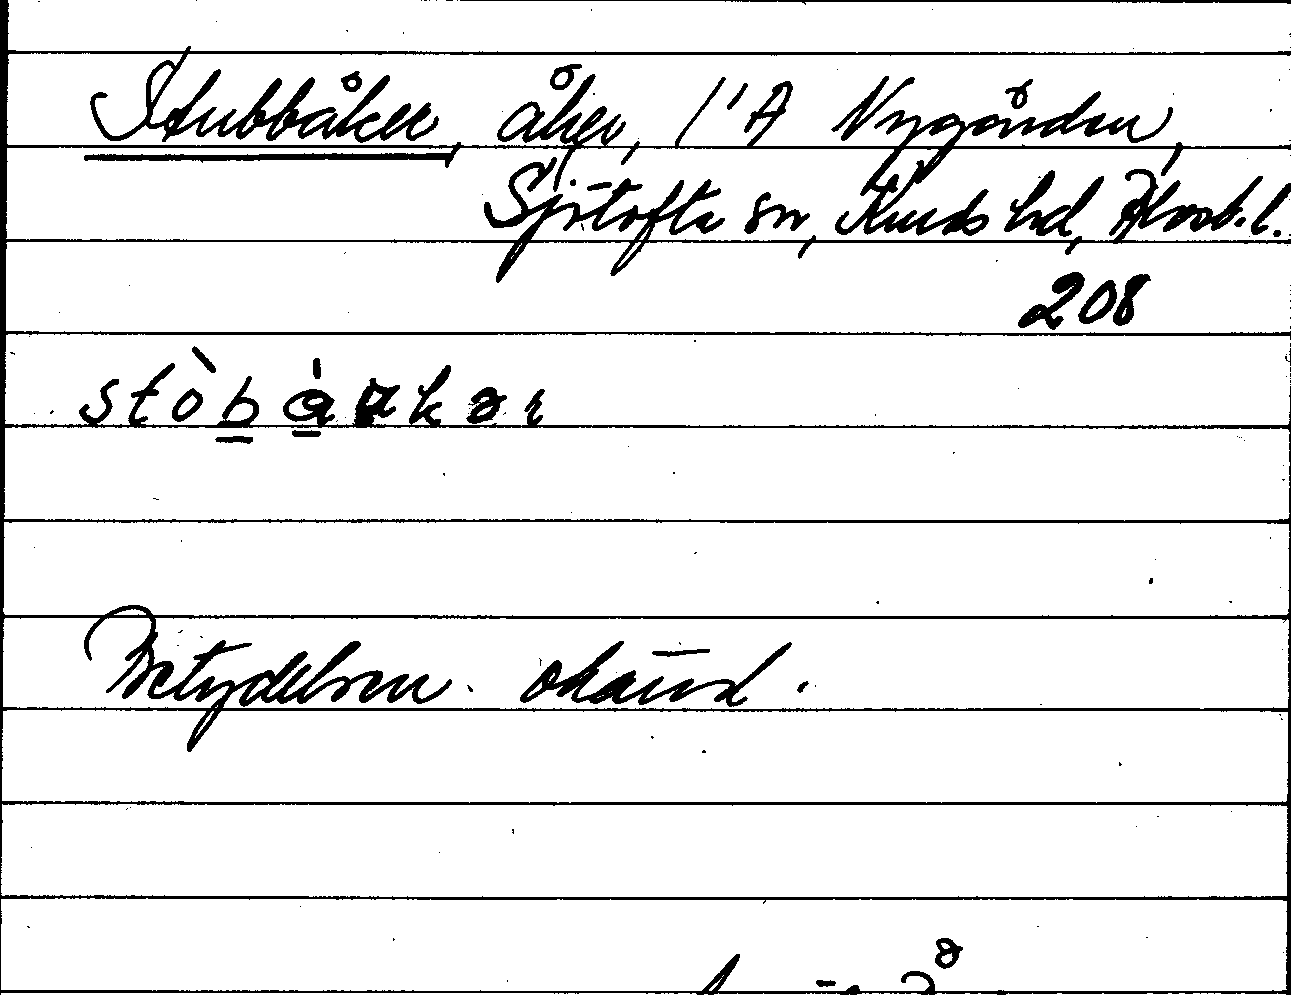 Stubbåker, åker, 1'A Nygården,
Sjötofta sn, Kinds hd, Älvsb. l.
208
stòbåakər
Betydelsen okänd.